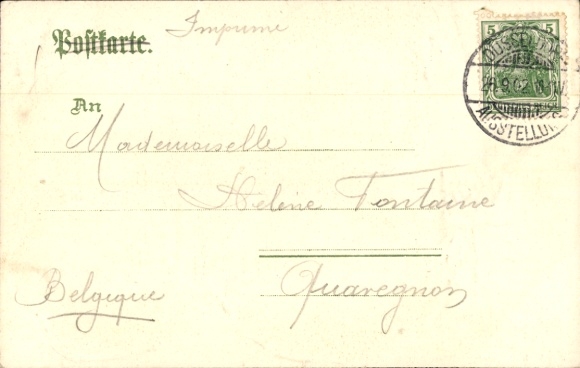 Imprimé
Postkarte.
5 5
DÜSSELDORF
9.02
AUSSTELLUNG
An
Mademoiselle
Hélène Fontaine
Quaregnon
Belgique